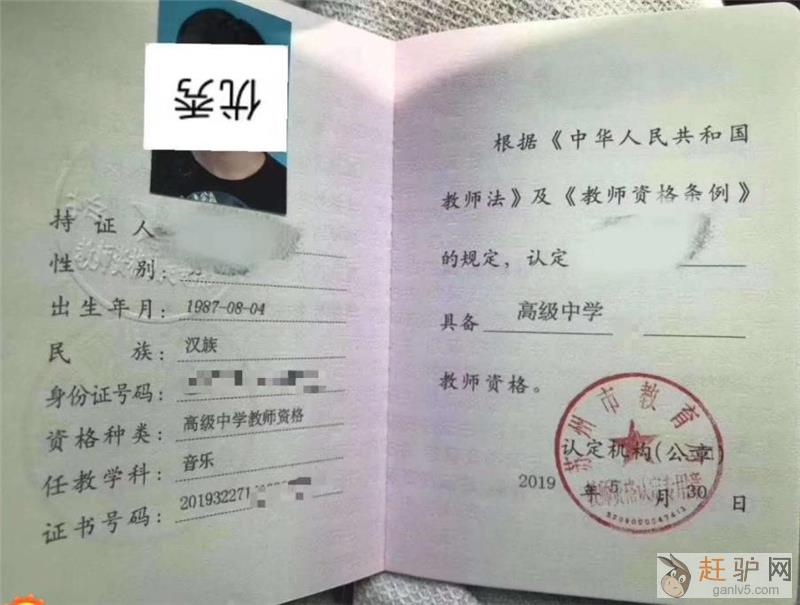 优秀
持证人
性别：
出生年月：1987-08-04
民族：汉族
身份证号码：
资格种类：高级中学教师资格
任教学科：音乐
证书号码：201932271
根据《中华人民共和国
教师法》及《教师资格条例》
的规定，认定
具备 高级中学
教师资格。
苏州市教育局
认定机构（公章）
教师资格认定专用章
2019年5月30日
赶驴网
ganlv5.com